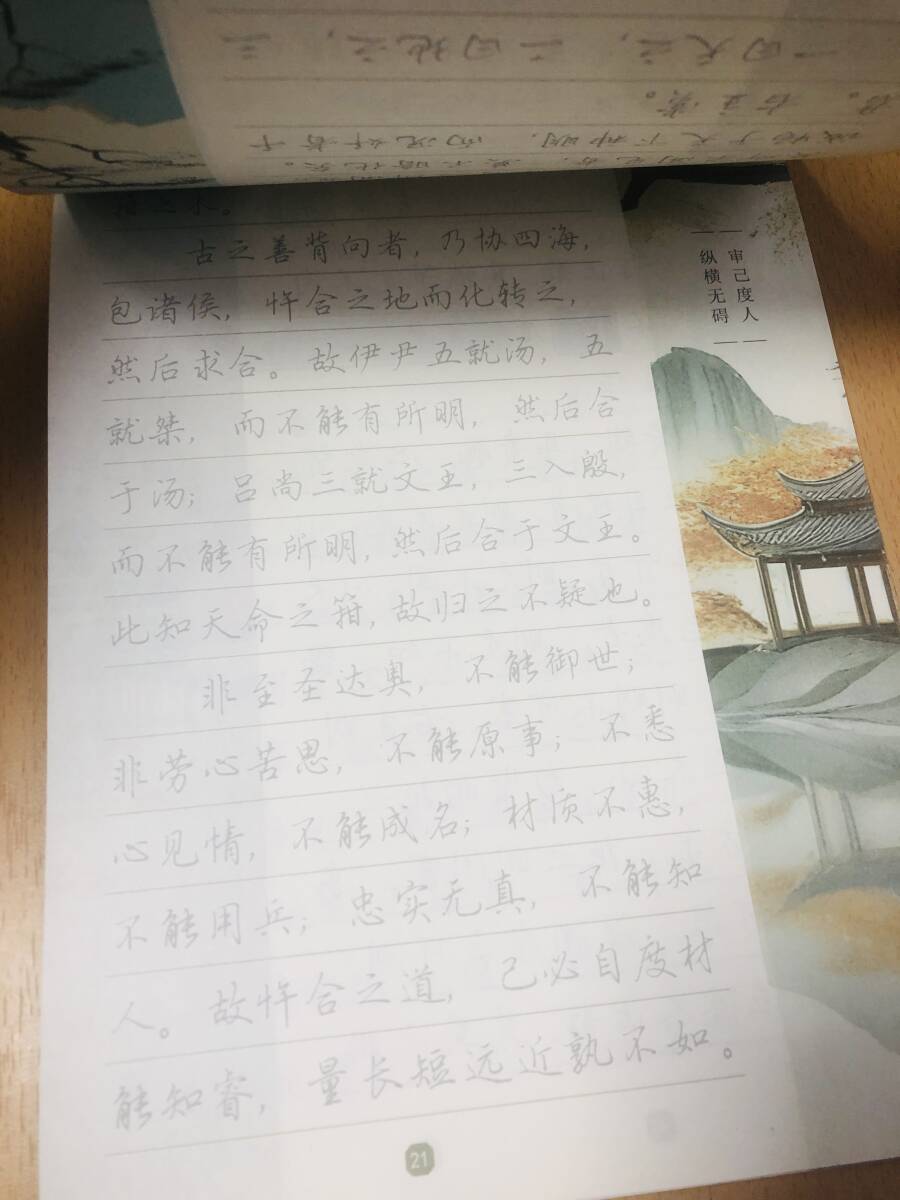 一曰天之，二曰地之，三
君。古之贵。
古之善背向者，乃协四海，
包诸侯，忤合之地而化转之，
然后求合。故伊尹五就汤，五
就桀，而不能有所明，然后合
于汤；吕尚三就文王，三入殷，
而不能有所明，然后合于文王。
此知天命之箝，故归之不疑也。
非至圣达奥，不能御世；
非劳心苦思，不能原事；不悉
心见情，不能成名；材质不惠，
不能用兵；忠实无真，不能知
人。故忤合之道，己必自度材
能知睿，量长短远近孰不如。
审己度人
纵横无碍
21